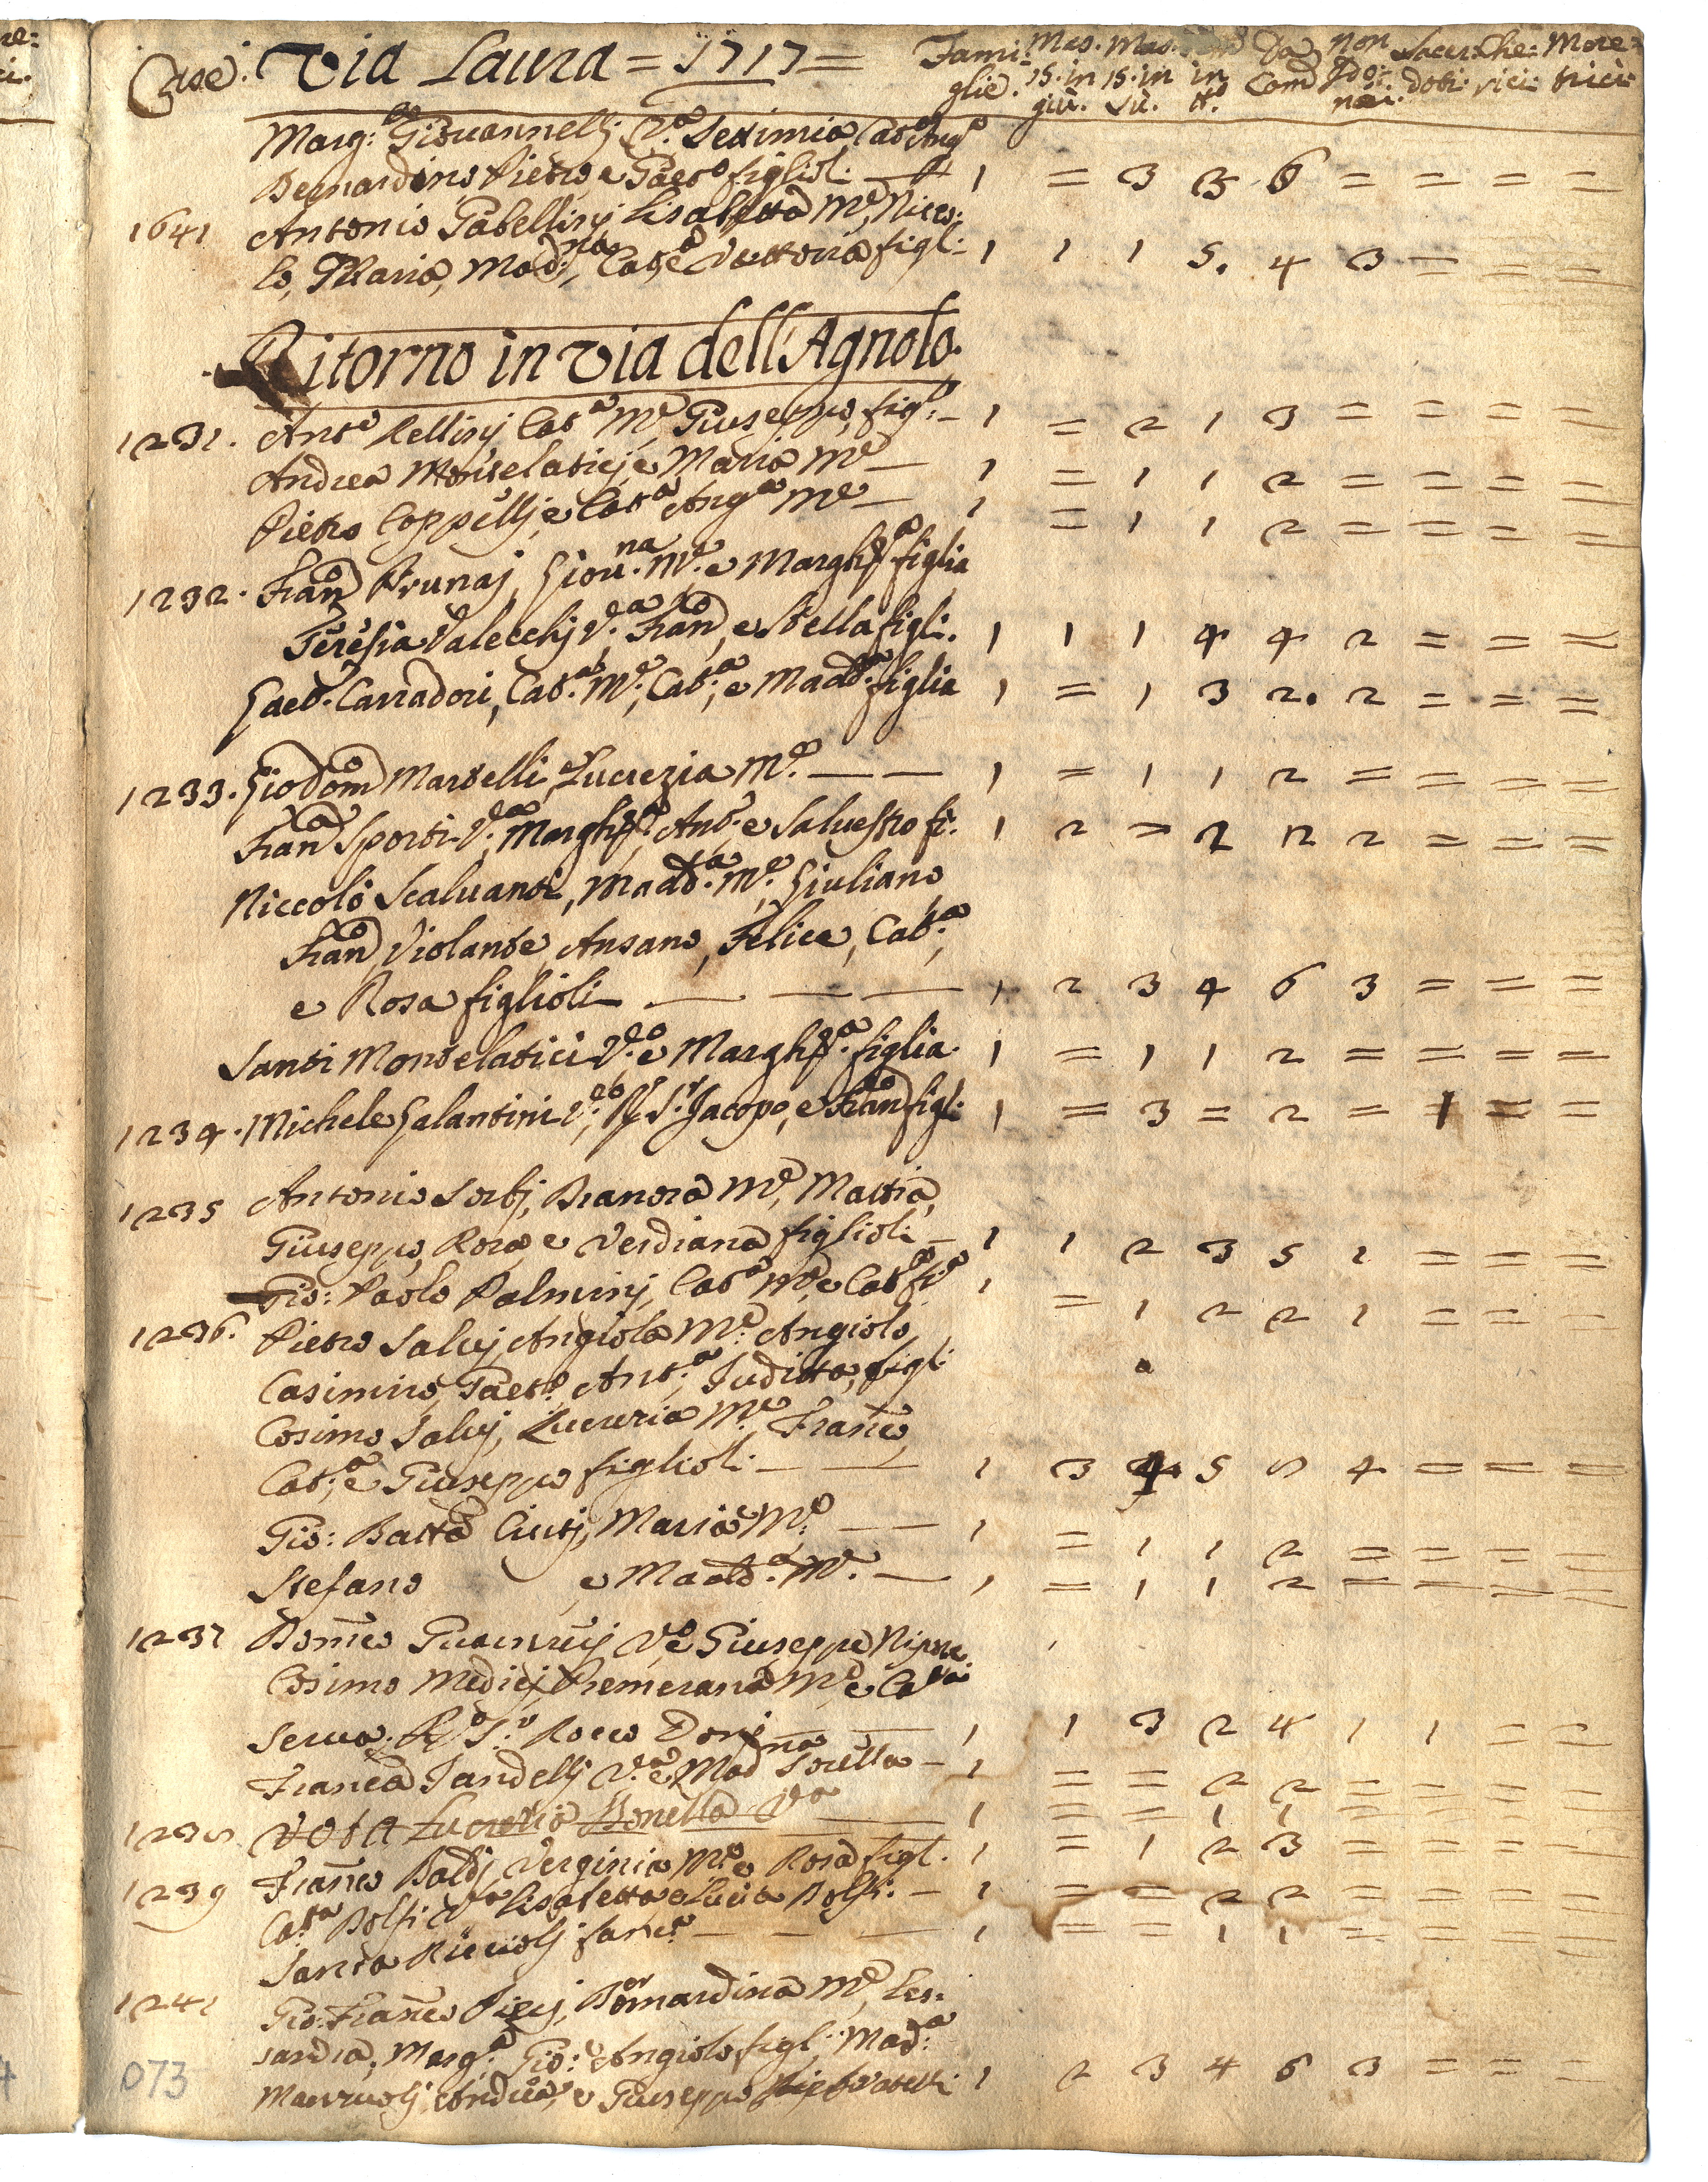 Case. Via Laura = 1717 = Fami- Mas. Mas. Da non Sacer- Che- More-
glie. 15. in 15. in in Com dobi. rici trici
giù. sù. tt.
Marg: Giovannelli V.a Settimia Cat.a Ang.a
Bernardino Pietro e Gaet.o figlioli — 1 = 3 3 6 = = = =
1641 Antonio Gabellinj Lisabetta M.e, Nicco:
lo, Maria, Mad:na, Cat.a e Vettoria figl: 1 1 1 5. 4 3 = = =
Ritorno in via dell'Agnolo.
1231. Ant.o Rellinj Cat.a M.e Giuseppe, fig.o — 1 = 2 1 3 = = = =
Andrea Montelaticj e Maria M.e — 1 = 1 1 2 = = = =
Pietro Coppellj e Cat.a Ang.a M.e — 1 = 1 1 2 = = = =
1232. Fran.o Prunaj, Giou.na M.e e Margh.a figlia
Teresia Valecchj V.a, Fran.o, e Stella figli. 1 1 1 4 4 2 = = =
Gaet. Carradori, Cat.a M.e, Cat.a, e Madd.a figlia 1 = 1 3 2. 2 = = =
1233. Gio Dom.o Martelli, Lucrezia M.e — — 1 = 1 1 2 = = = =
Fran.a Sporti V.a, Margh.a, Ant.o e Saluestro fi. 1 2 = 2 2 2 = = =
Niccolò Scaluanti, Madd.a M.e, Giuliano
Fran.o, Violante, Ansano, Felice, Cat.a,
e Rosa figlioli — — — 1 2 3 4 6 3 = = =
Santi Montelatici V.o e Margh.a figlia. 1 = 1 1 2 = = = =
1234. Michele Galantini V.o, R. S.r Jacopo, e Fran.o figl: 1 = 3 = 2 = 1 = =
1235 Antonio Sorbj, Branora M.e, Mattia,
Giuseppe, Rosa e Verdiana figlioli — 1 1 2 3 5 1 = = =
Gio: Paolo Palminj, Cat.a M.e, e Cat.a fi.a 1 = 1 2 2 1 = = =
1236. Pietro Saluj Angiola M.e: Angiolo
Casimiro, Gaet.o, Ant.a, Juditta, figl:
Cosimo Saluj, Lucrezia M.e, Franc.o,
Cat.a, e Giuseppe figlioli — — 1 3 4 5 8 4 = = =
Gio: Batta Ciutj, Maria M.e — — 1 = 1 1 2 = = = =
Stefano e Madd.a M.e — 1 = 1 1 2 = = = =
1237 Dom.co V.o e Giuseppe Nipote
Cosimo Medicj, Premerana M.e e Cat.a
Serua. R.o S.r Rocco Donj — — 1 1 3 2 4 1 1 = =
Franc.a Jandellj V.a e Mad.na sorella — 1 = = 2 2 = = = =
1238 Vota Lucretia Bonella V.a — 1 = = 1 1 = = = =
1239 Franc.o Baldj Verginia M.e e Rosa figl. 1 = 1 2 3 = = = =
Cat.a Bolsi V.a Lisabetta e Lucia Bolsi. — 1 = = 2 2 = = = =
Santa — — — 1 = = 1 1 = = = =
1241 Gio: Franc.o Piecj, Bernardina M.e, Les:
sandra, Marg.a, Gio: Angiolo figl:, Mad.a
Andrea, e Giuseppe fratelli 1 2 3 4 6 3 = = =
073